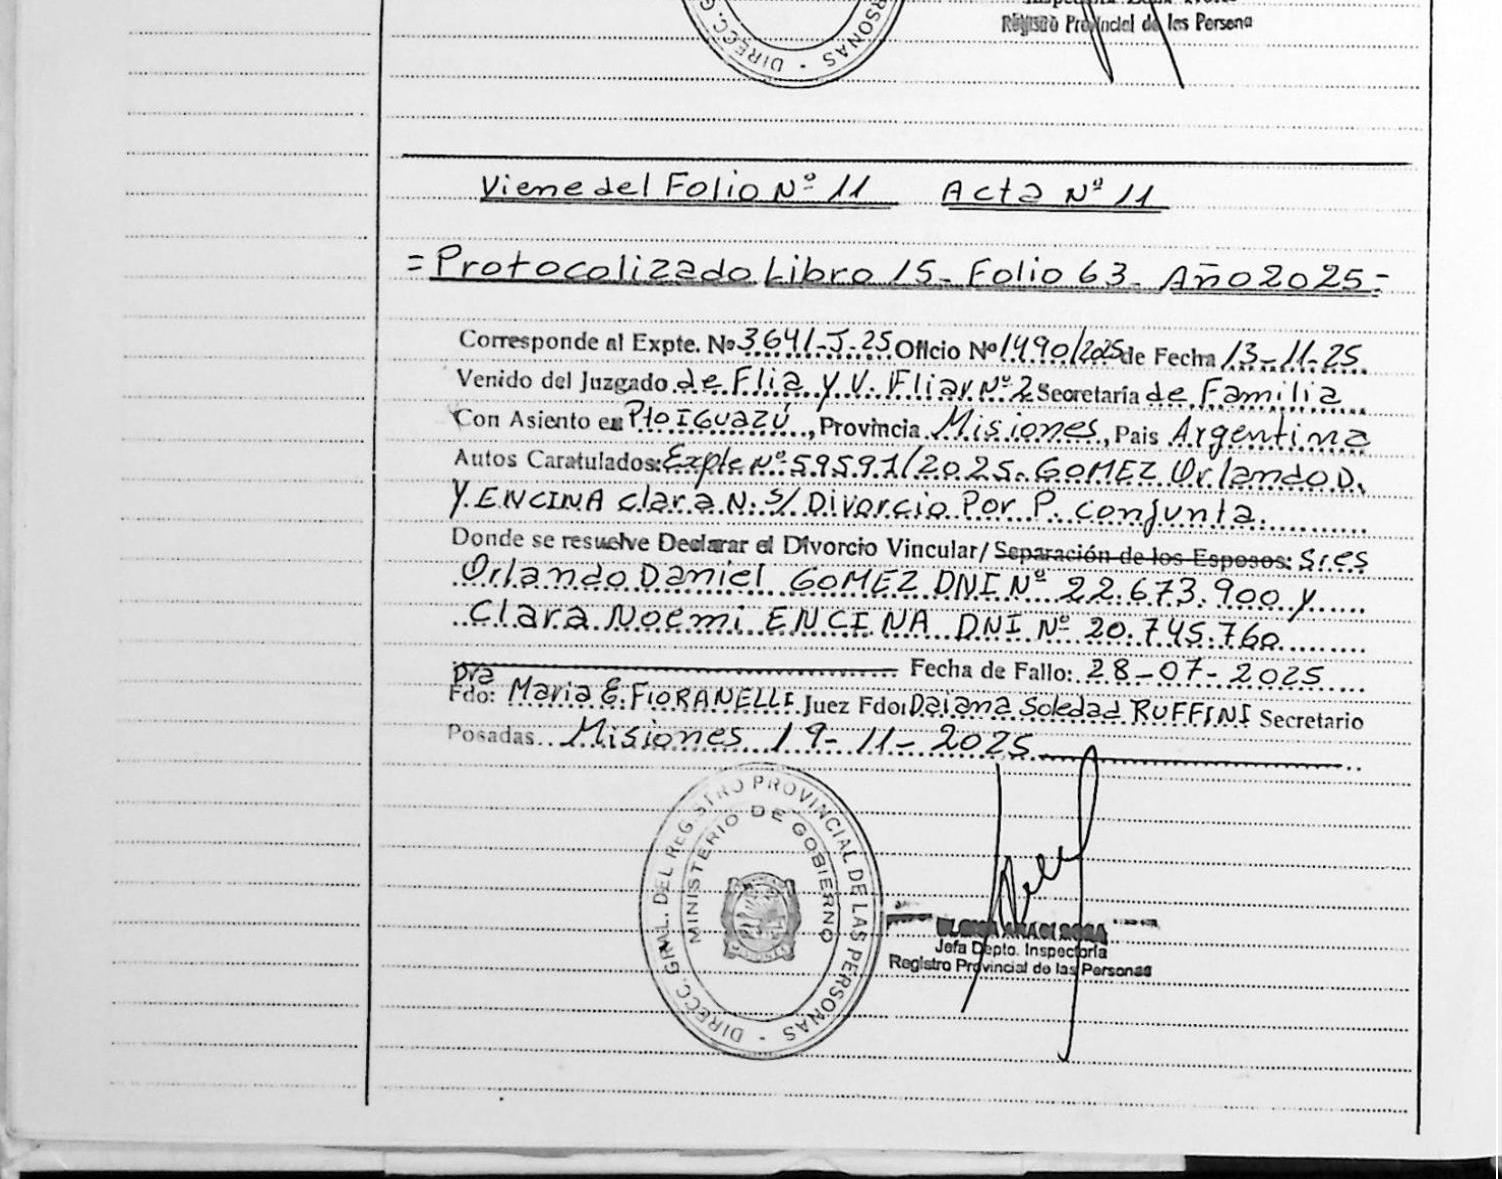 Registro Provincial de las Persona
DIRECC. G
SONAS
Viene del Folio Nº 11 Acta Nº 11
= Protocolizado Libro 15 - Folio 63 - Año 2025 =
Corresponde al Expte. Nº 3641-J-25 Oficio Nº 1490/2025 de Fecha 13-11-25
Venido del Juzgado de Flia y V. Fliar Nº 2 Secretaría de Familia
Con Asiento en Pto IGUAZÚ, Provincia Misiones, Pais Argentina
Autos Caratulados: Expte Nº 59591/2025. GOMEZ Orlando D.
Y ENCINA Clara N. S/ Divorcio Por P. conjunta.
Donde se resuelve Declarar el Divorcio Vincular/ Separación de los Esposos: Sres
Orlando Daniel GOMEZ DNI Nº 22.673.900 y
Clara Noemi ENCINA DNI Nº 20.745.760
Fecha de Fallo: 28-07-2025
Dra
Fdo: Maria E. FIORANELLI Juez Fdo: Daiana Soledad RUFFINI Secretario
Posadas Misiones 19-11-2025
DIRECC. GRAL. DEL REGISTRO PROVINCIAL DE LAS PERSONAS
MINISTERIO DE GOBIERNO
Jefa Depto. Inspectoria
Registro Provincial de las Personas